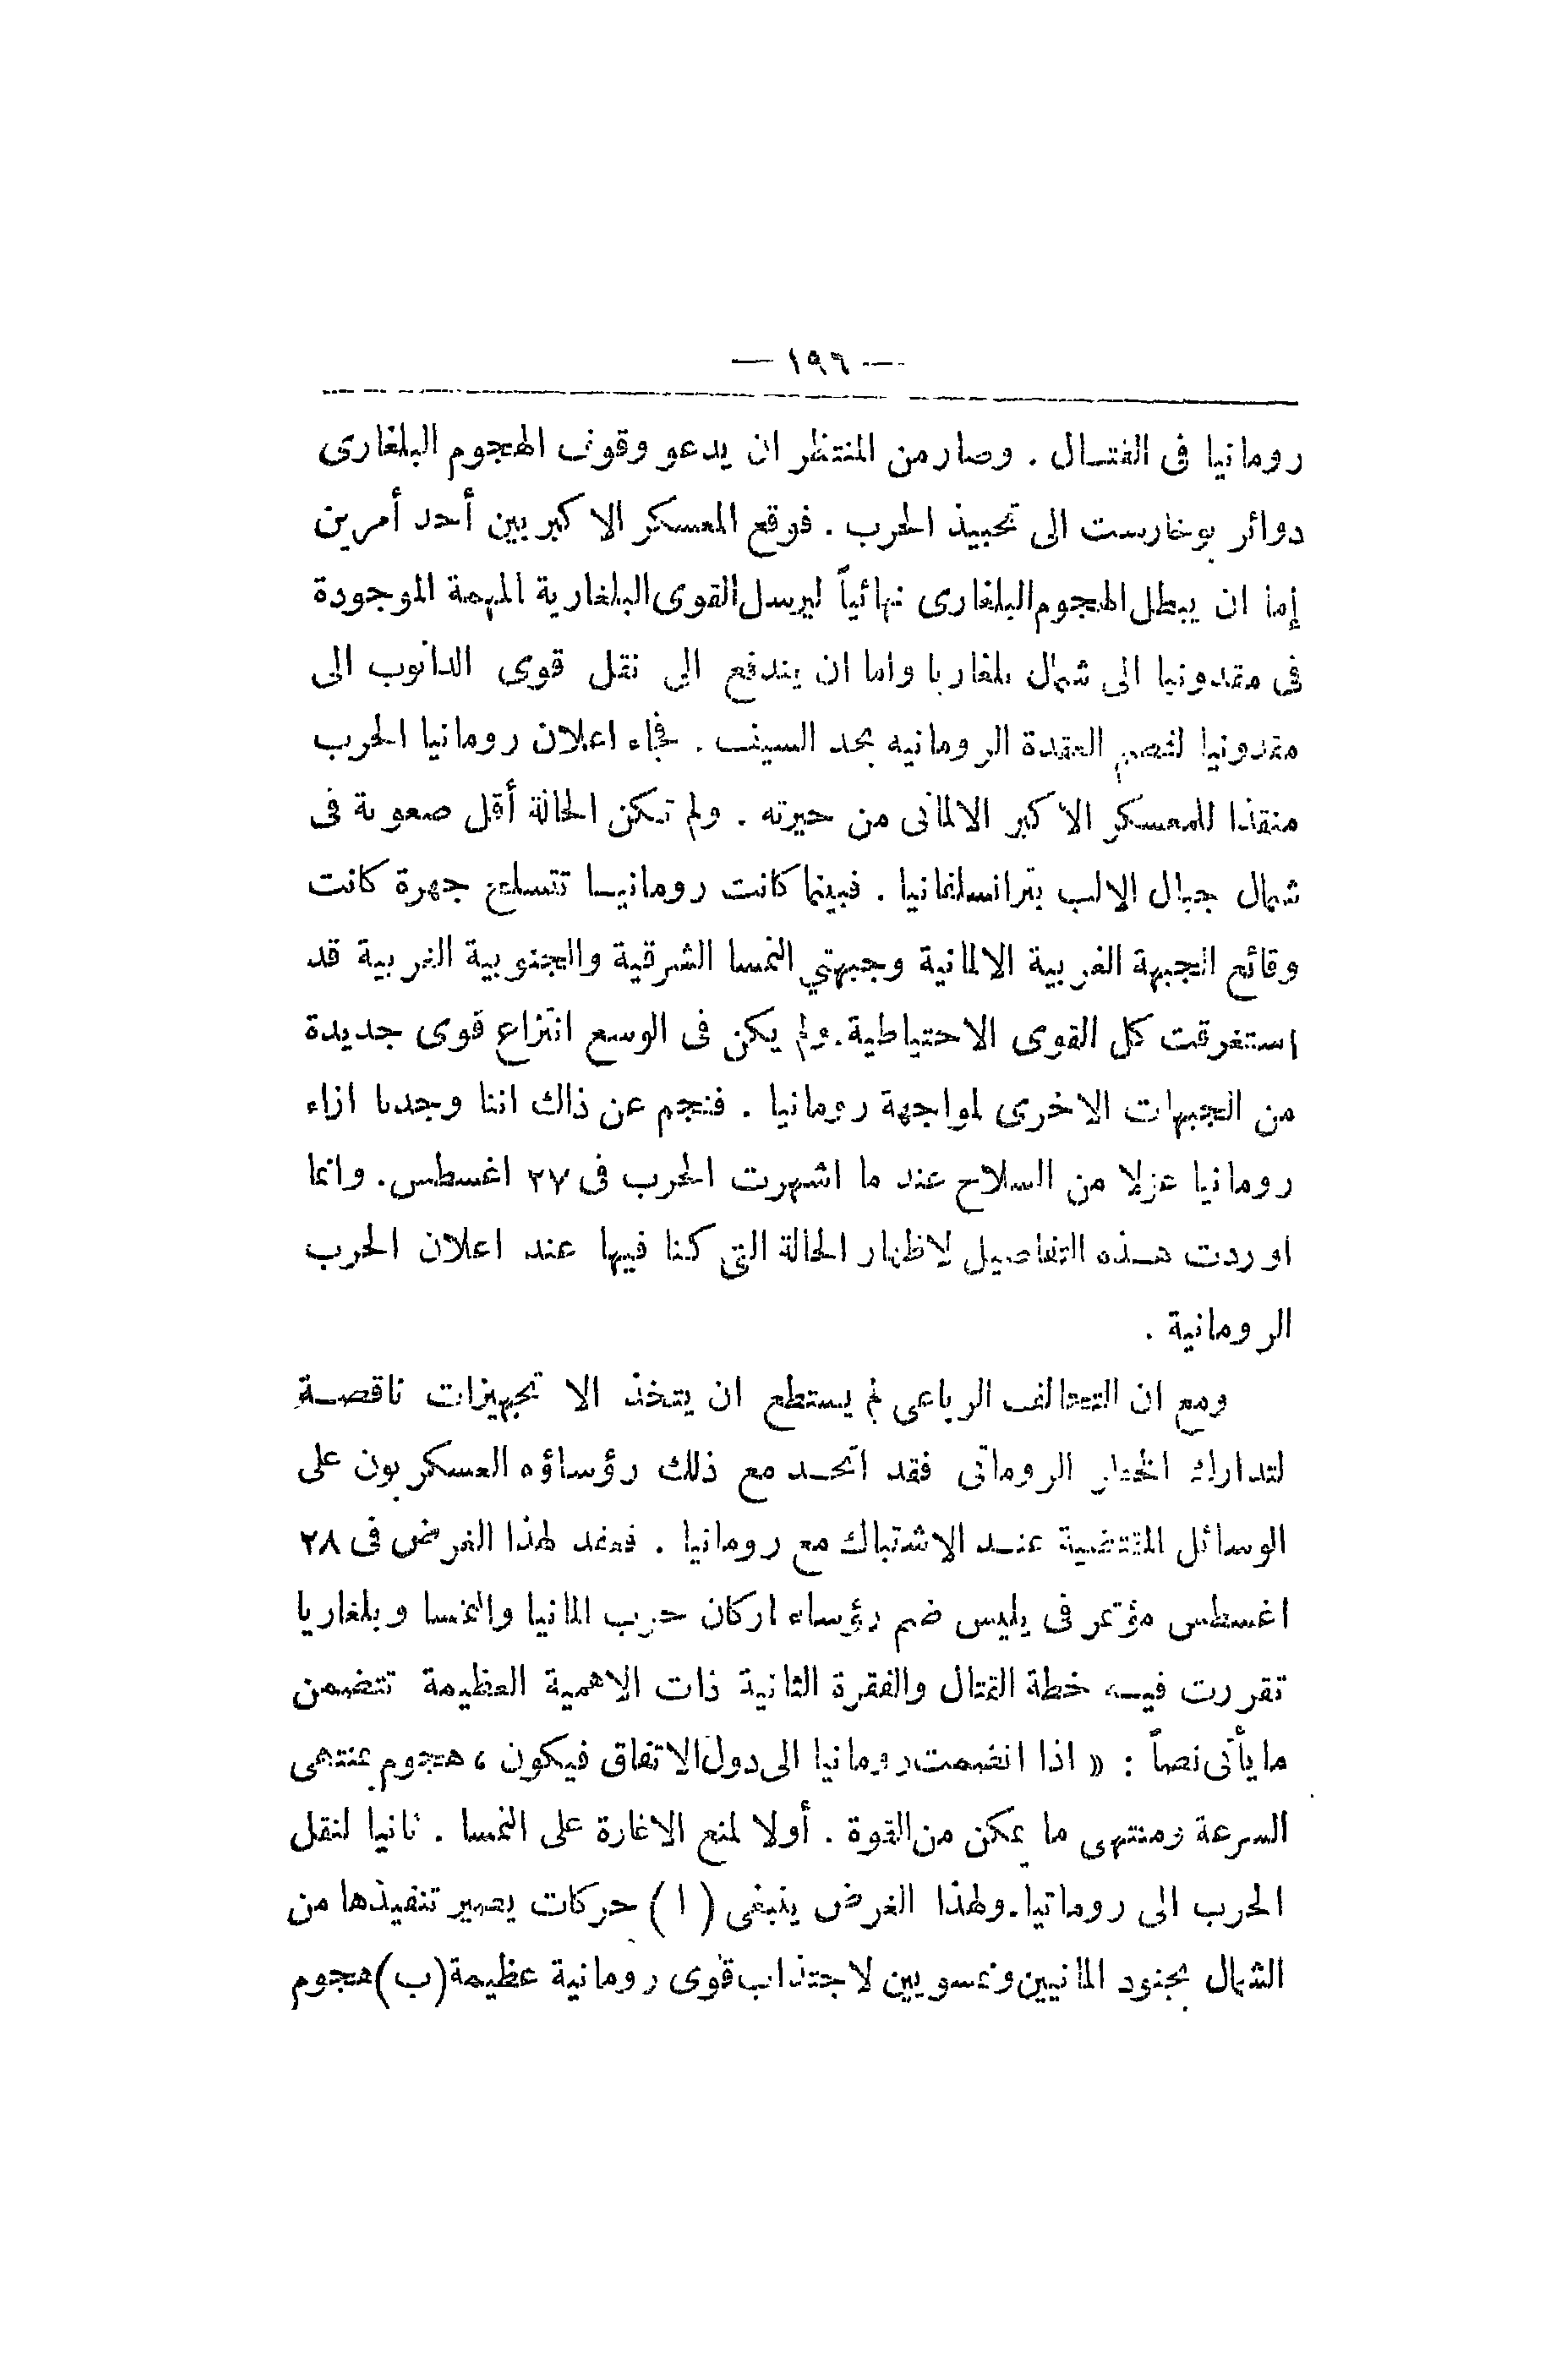 — ١٩٦ —
رومانيا فى القتـال . وصار من المنتظر ان يدعو وقوف الهجوم البلغارى
دوائر بوخارست الى تحبيذ الحرب . فوقع المعسكر الاكبر بين أحد أمرين
إما ان يبطل الهجوم البلغارى نهائياً ليرسل القوى البلغارية المهمة الموجودة
فى مقدونيا الى شمال بلغاريا واما ان يندفع الى نقل قوى الدانوب الى
مقدونيا لفصم العقدة الرومانيه بحد السيف . فجاء اعلان رومانيا الحرب
منقذا للمعسكر الاكبر الالمانى من حيرته . ولم تكن الحالة أقل صعوبة فى
شمال جبال الالب بترانسلفانيا . فبينما كانت رومانيـا تتسلح جهرة كانت
وقائع الجبهة الغربية الالمانية وجبهتي النمسا الشرقية والجنوبية الغربية قد
استغرقت كل القوى الاحتياطية. ولم يكن فى الوسع انتزاع قوى جديدة
من الجبهات الاخرى لمواجهة رومانيا . فنجم عن ذاك اننا وجدنا ازاء
رومانيا عزلا من السلاح عند ما اشهرت الحرب فى ٢٧ اغسطس. وانما
اوردت هـذه التفاصيل لاظهار الحالة التى كنا فيها عند اعلان الحرب
الرومانية .
ومع ان التحالف الرباعى لم يستطع ان يتخذ الا تجهيزات ناقصـة
لتدارك الخطر الرومانى فقد اتحـد مع ذلك رؤساؤه العسكريون على
الوسائل المقتضية عنـد الاشتباك مع رومانيا . فعقد لهذا الغرض فى ٢٨
اغسطس مؤتمر فى بليس ضم رؤساء اركان حرب المانيا والنمسا وبلغاريا
تقررت فيـه خطة القتال والفقرة الثانية ذات الاهمية العظيمة تتضمن
ما يأتى نصاً : « اذا انضمت رومانيا الى دول الاتفاق فيكون ، هجوم بمنتهى
السرعة ومنتهى ما يمكن من القوة . أولا لمنع الاغارة على النمسا . ثانيا لنقل
الحرب الى رومانيا. ولهذا الغرض ينبغى ( ا ) حركات يصير تنفيذها من
الشمال بجنود المانيين ونمسويين لاجتذاب قوى رومانية عظيمة (ب) هجوم